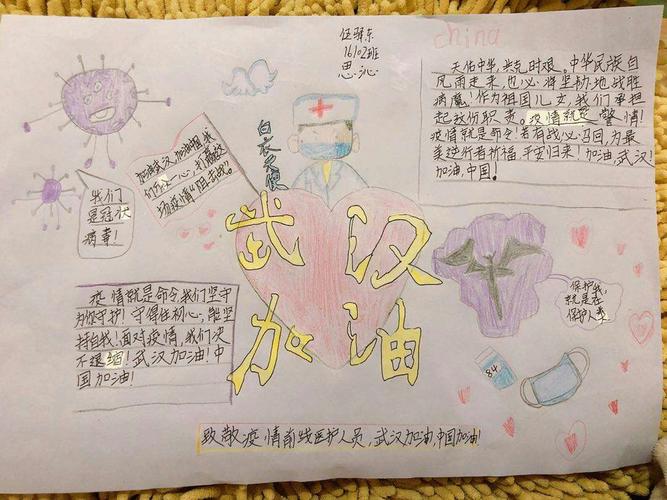 伍驿东
1602班
思沁
china
天佑中华,共克时艰。中华民族自
风雨走来,也必将坚韧地战胜
病魔!作为祖国儿女,我们承担
起这份职责。疫情就是警情!
疫情就是命令!若有战必冯回,为最
美逆行者祈福,平安归来!加油,武汉!
加油,中国!
白衣天使
加油武汉,加油中国,我
们万众一心,打赢这
场疫情“阻击战”。
我们
是冠状
病毒!
武汉
加油
疫情就是命令,我们坚守
为你守护!守得住初心,能坚
持自我!面对疫情,我们决
不退缩!武汉加油!中
国加油!
保护我,
就是在
保护人类
84
致敬疫情前线医护人员,武汉加油,中国加油!